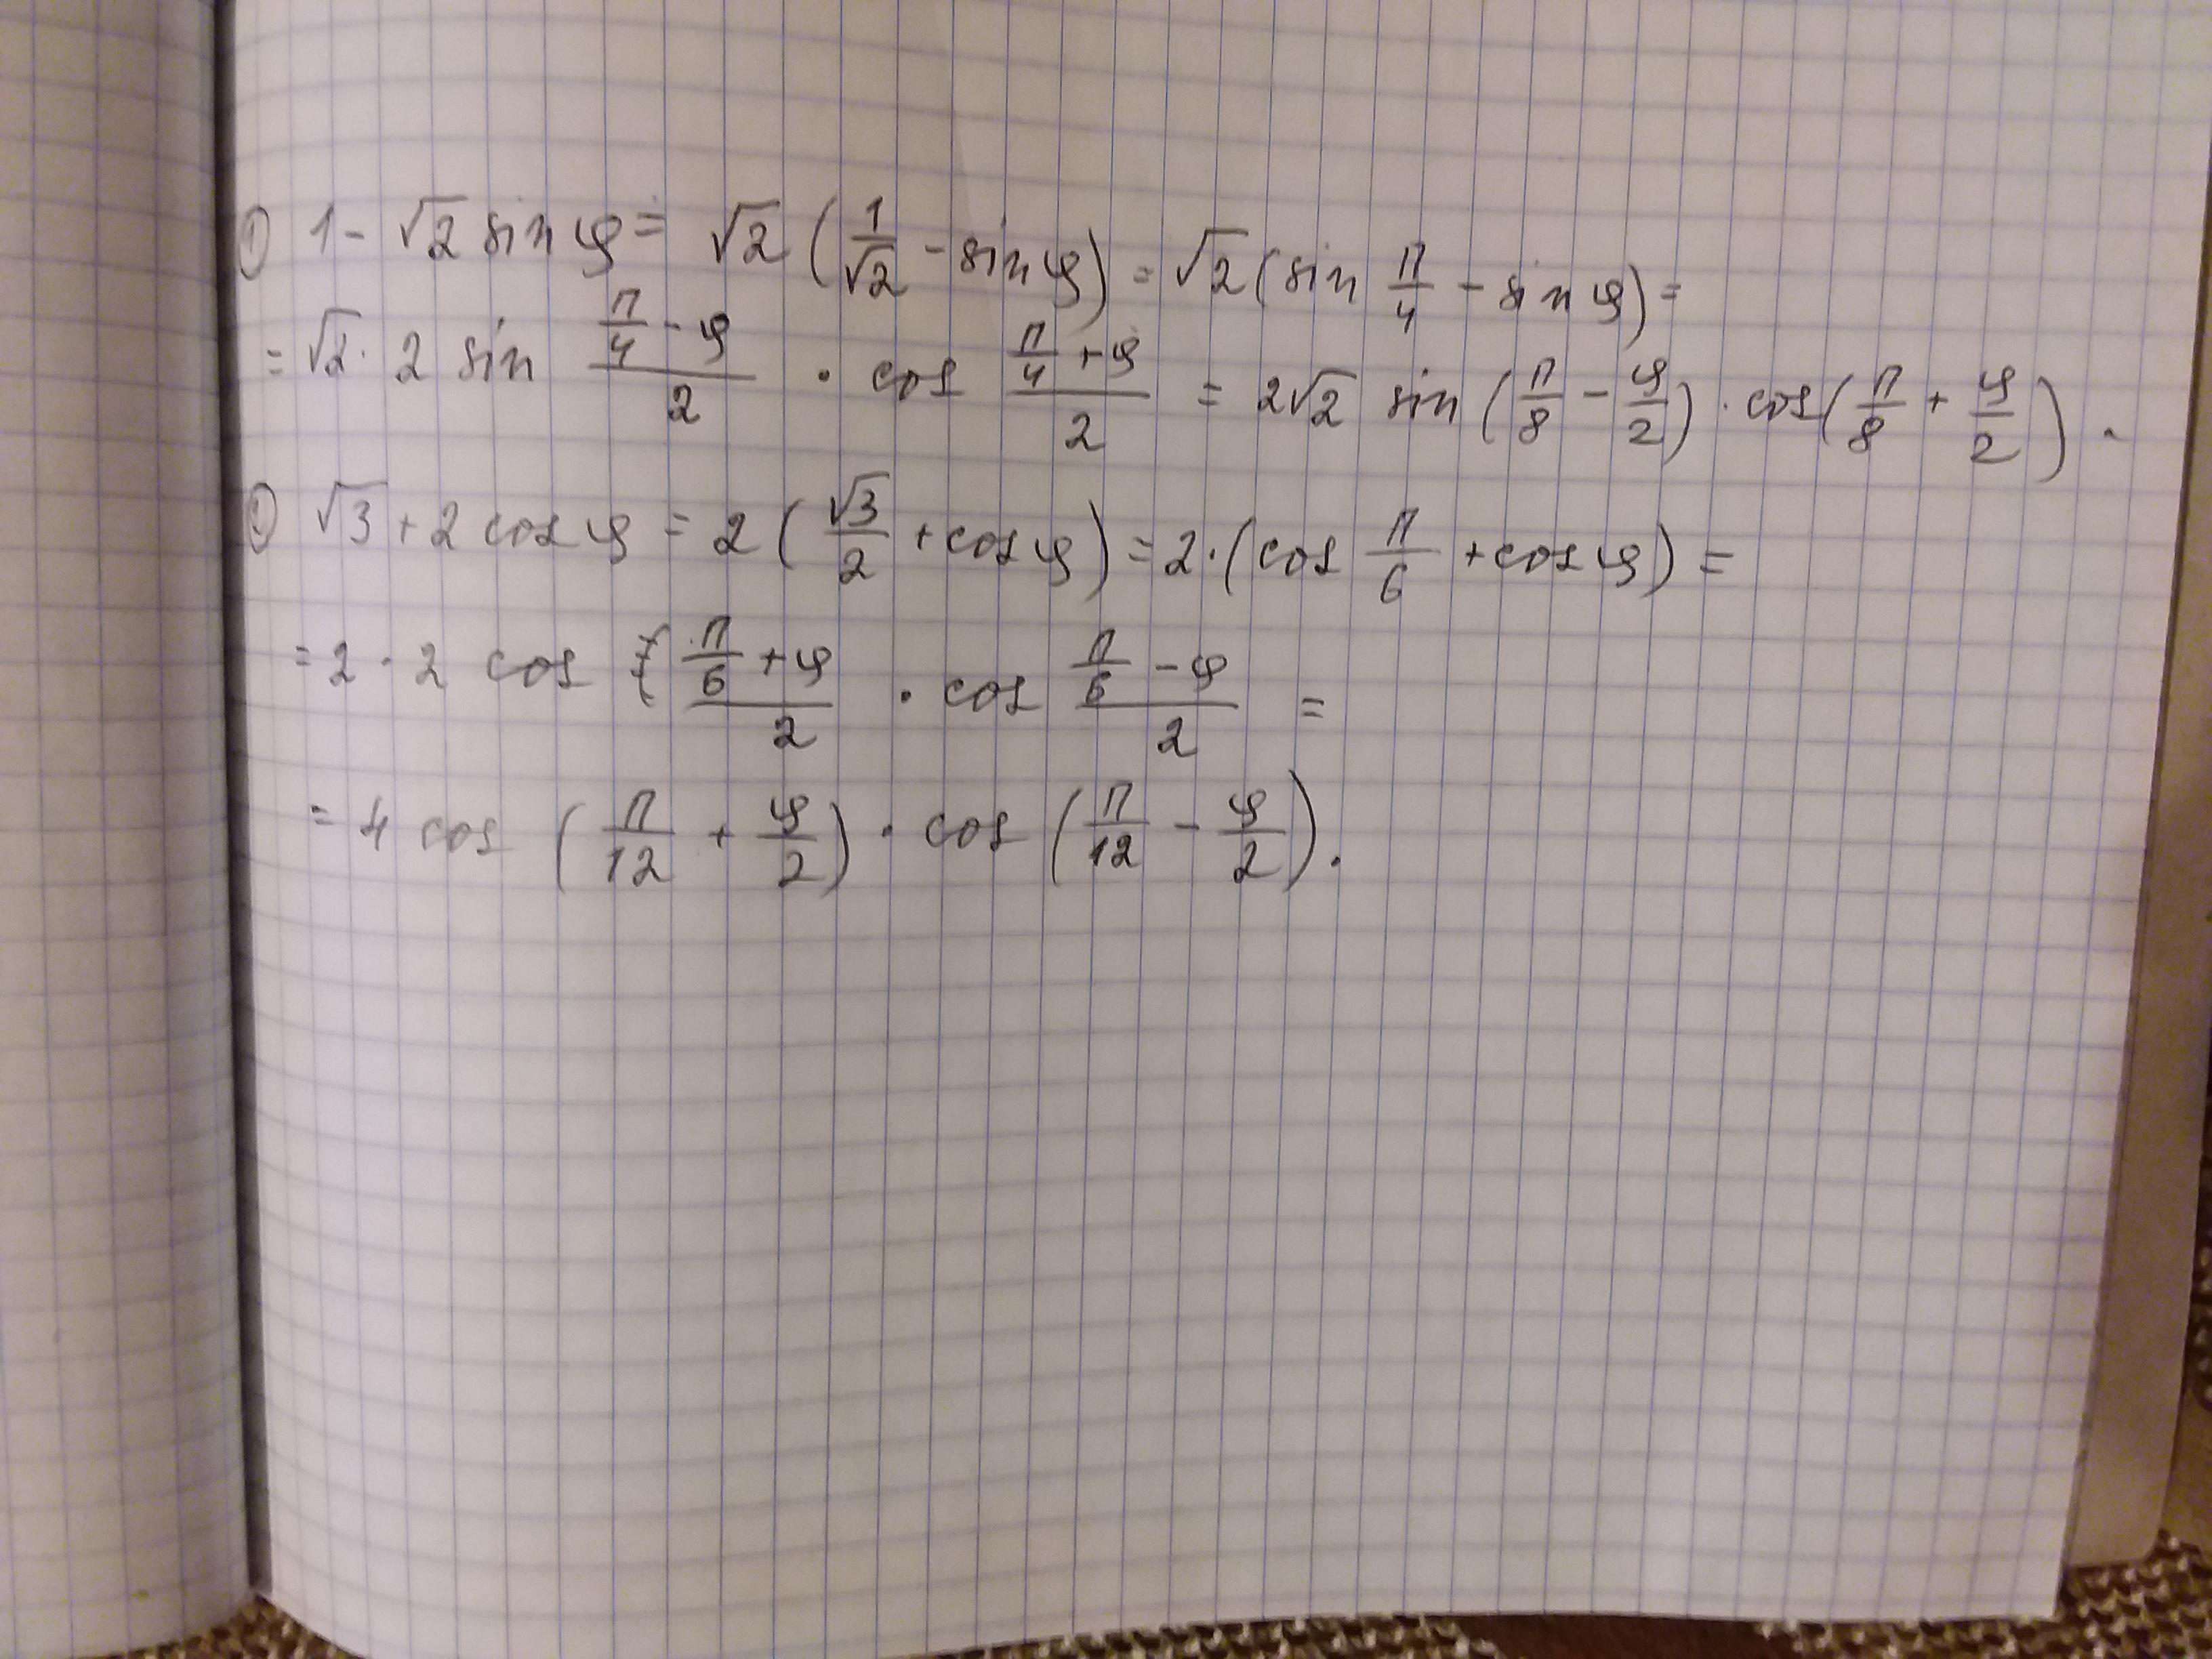 ① 1 - √2 sin φ = √2 (1/√2 - sin φ) = √2 (sin π/4 - sin φ) =
= √2 · 2 sin (π/4 - φ)/2 · cos (π/4 + φ)/2 = 2√2 sin (π/8 - φ/2) · cos (π/8 + φ/2).
② √3 + 2 cos φ = 2 (√3/2 + cos φ) = 2 · (cos π/6 + cos φ) =
= 2 · 2 cos (π/6 + φ)/2 · cos (π/6 - φ)/2 =
= 4 cos (π/12 + φ/2) · cos (π/12 - φ/2).